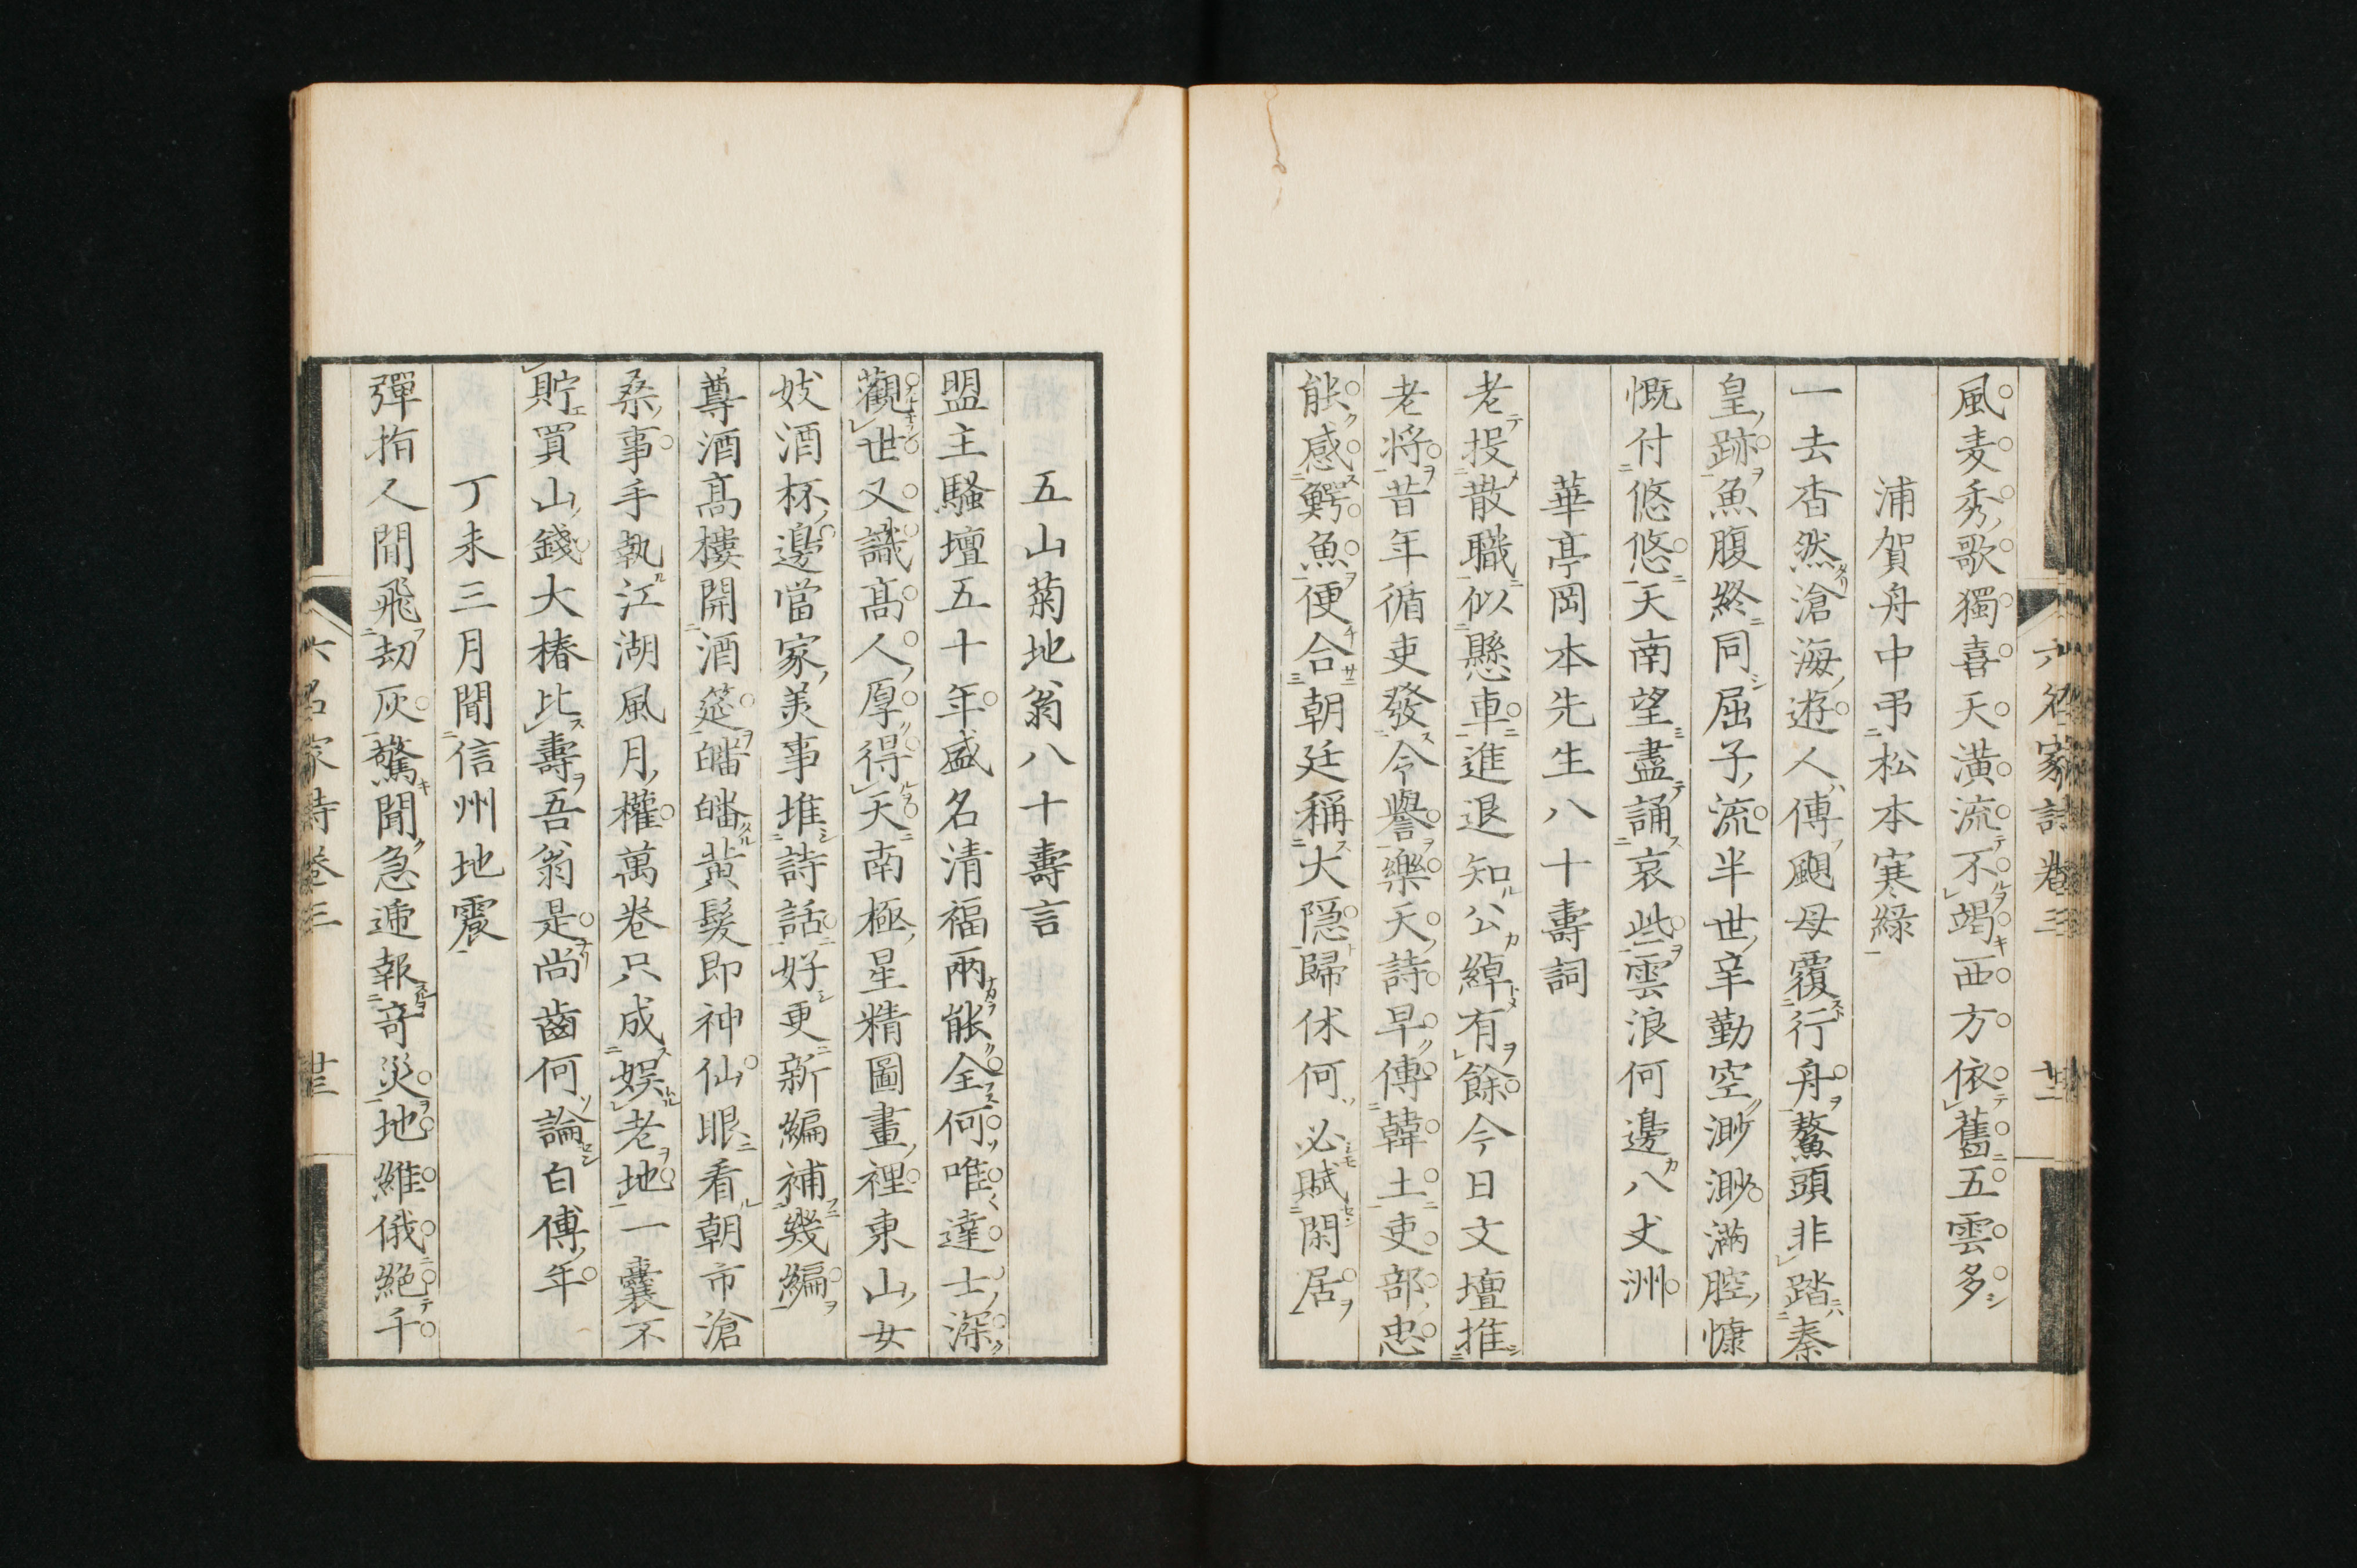 六名家詩卷三 廿二
風麦秀歌獨喜天潢流不竭西方依舊五雲多
浦賀舟中弔松本寒緑
一去杳然滄海遊人傳颶母覆行舟鰲頭非踏秦
皇跡魚腹終同屈子流半世辛勤空渺渺滿腔慷
慨付悠悠天南望盡誦哀些雲浪何邊八丈洲
華亭岡本先生八十壽詞
老投散職似懸車進退知公綽有餘今日文壇推
老將昔年循吏發令譽樂天詩早傳韓土吏部忠
能感鰐魚便合朝廷稱大隠歸休何必賦閑居
五山菊地翁八十壽言
盟主騷壇五十年盛名清福兩能全何唯達士深
觀世又識高人厚得天南極星精圖畫裡東山女
妓酒杯邊當家美事堆詩話好更新編補幾編
尊酒高樓開酒筵皤皤黄髮即神仙眼看朝市滄
桑事手執江湖風月權萬卷只成娯老地一囊不
貯買山錢大椿比壽吾翁是尚齒何論白傅年
丁未三月聞信州地震
彈指人間飛劫灰驚聞急逓報竒災地維俄絶千
六名家詩卷三 廿三